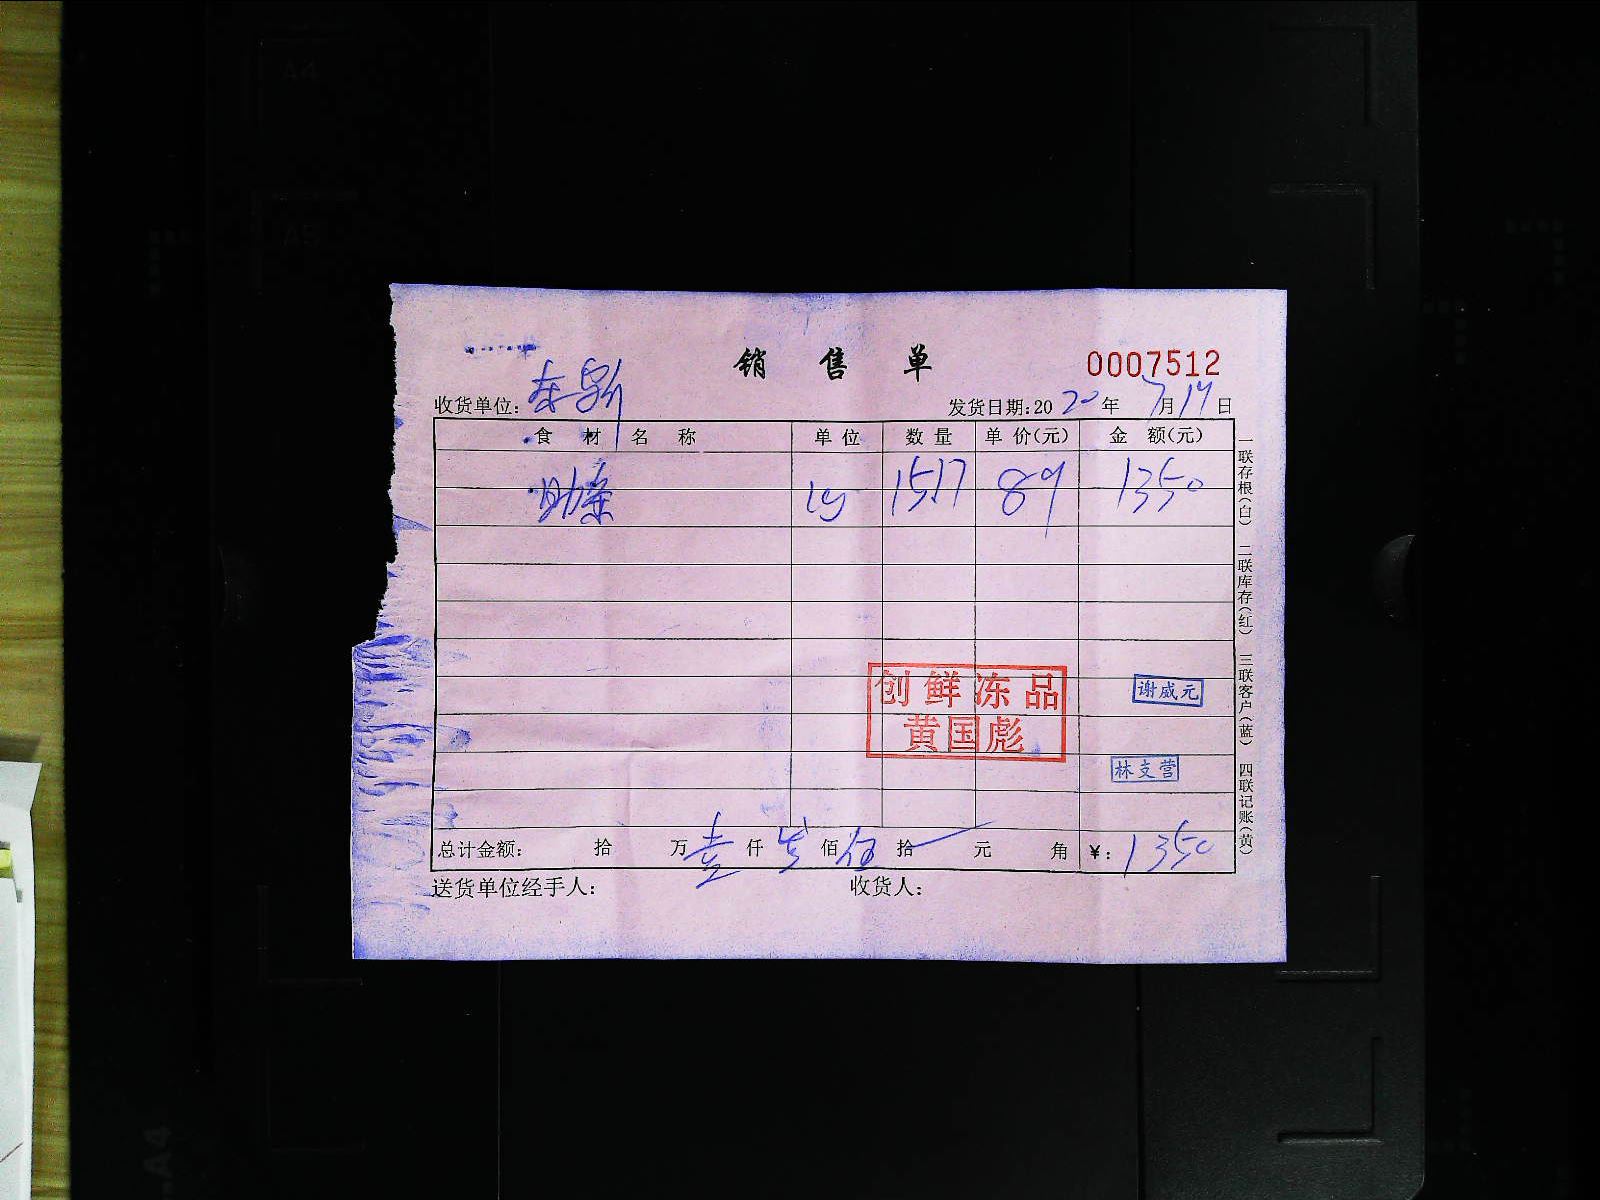 销售单
0007512
收货单位:
发货日期:2020年7月14日
食材名称 单位 数量 单价(元) 金额(元)
1517 89 1350
创鲜冻品
黄国彪
谢威元
林支营
总计金额: 拾 万壹仟 佰伍拾 元 角 ¥:1350
送货单位经手人: 收货人:
一联存根(白) 二联库存(红) 三联客户(蓝) 四联记账(黄)
A4
A5
A4